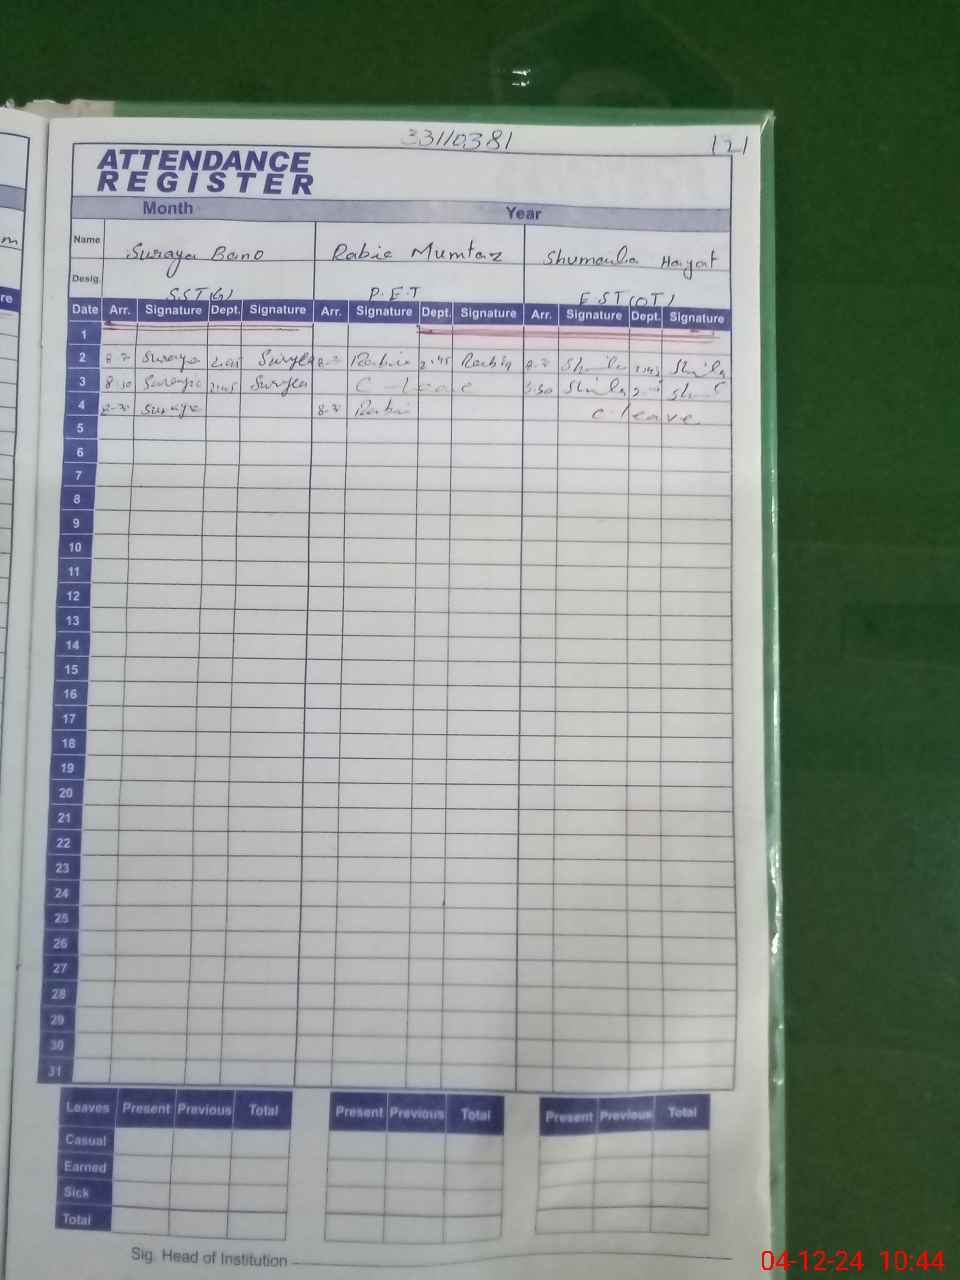 33110381
121
ATTENDANCE
REGISTER
Month Year
Name Suraya Bano Rabia Mumtaz Shumaila Hayat
Desig. SST(G) P.E.T E.S.T(OT)
Date Arr. Signature Dept. Signature Arr. Signature Dept. Signature Arr. Signature Dept. Signature
1
2 Suraya 2:45 Rabia 2:45 Rabia 2:45
3 8:30 2:45 C-leave
4 8-30 Rabia c.leave
5
6
7
8
9
10
11
12
13
14
15
16
17
18
19
20
21
22
23
24
25
26
27
28
29
30
31
Leaves Present Previous Total Present Previous Total Present Previous Total
Casual
Earned
Sick
Total
Sig. Head of Institution
04-12-24 10:44
m
re